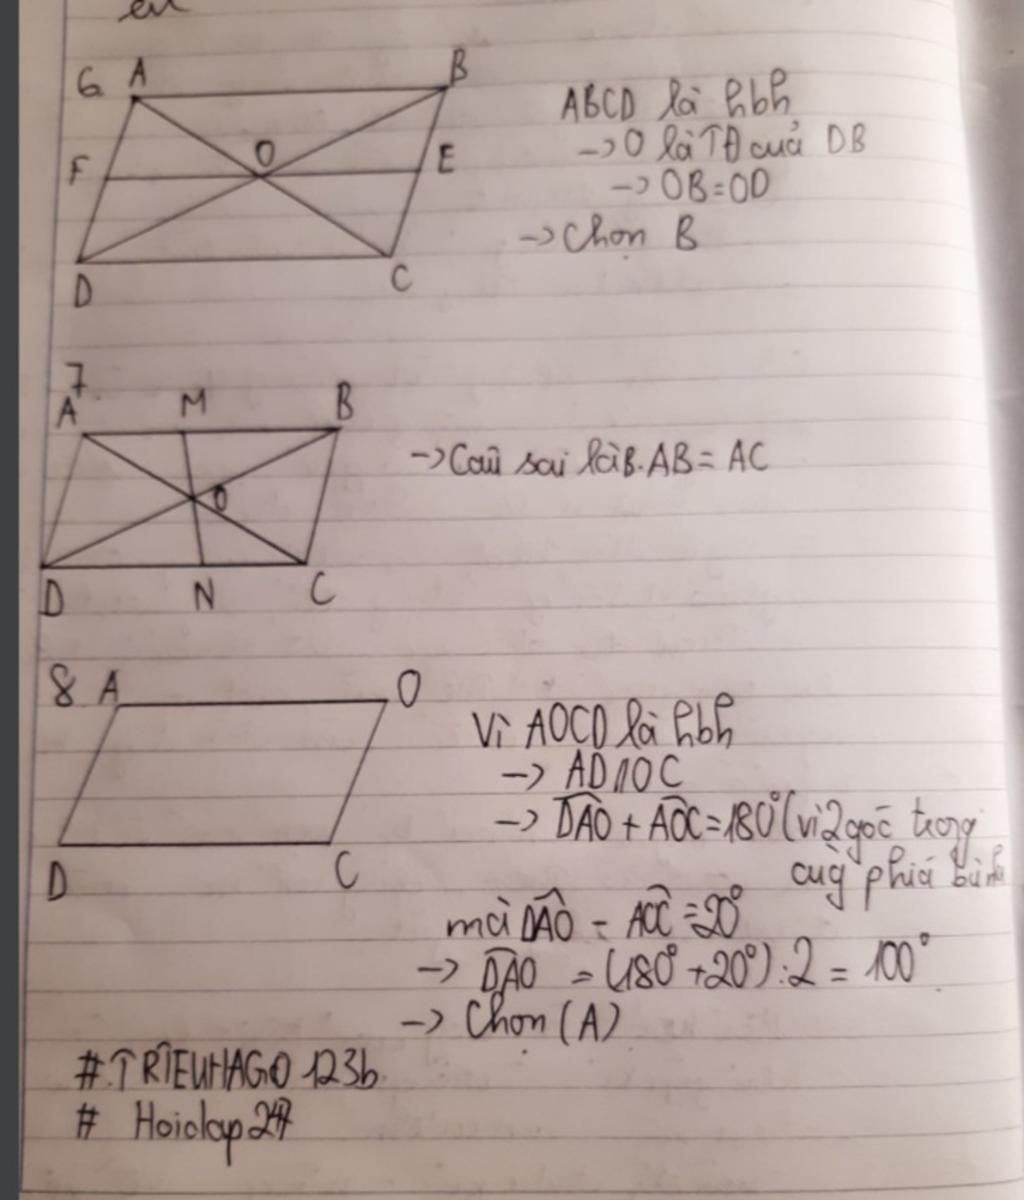 6 A B
F O E
D C
ABCD là hbh
-> O là TĐ của DB
-> OB = OD
-> Chọn B
7
A M B
O
D N C
-> Câu sai là B. AB = AC
8 A O
D C
Vì AOCD là hbh
-> AD // OC
-> DAO + AOC = 180° (vì 2 góc trong
cùg phía bù nh
mà DAO - AOC = 20°
-> DAO = (180° + 20°) : 2 = 100°
-> Chọn (A)
#.TRIEUHAGO 123b.
# Hoidap247